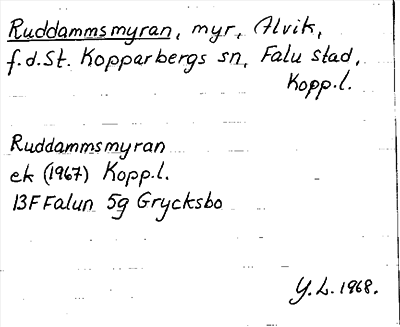 Ruddammsmyran, myr, Alvik,
f.d.St. Kopparbergs sn, Falu stad,
Kopp.l.
Ruddammsmyran
ek (1967) Kopp.l.
13F Falun 5g Grycksbo
Y.L. 1968.